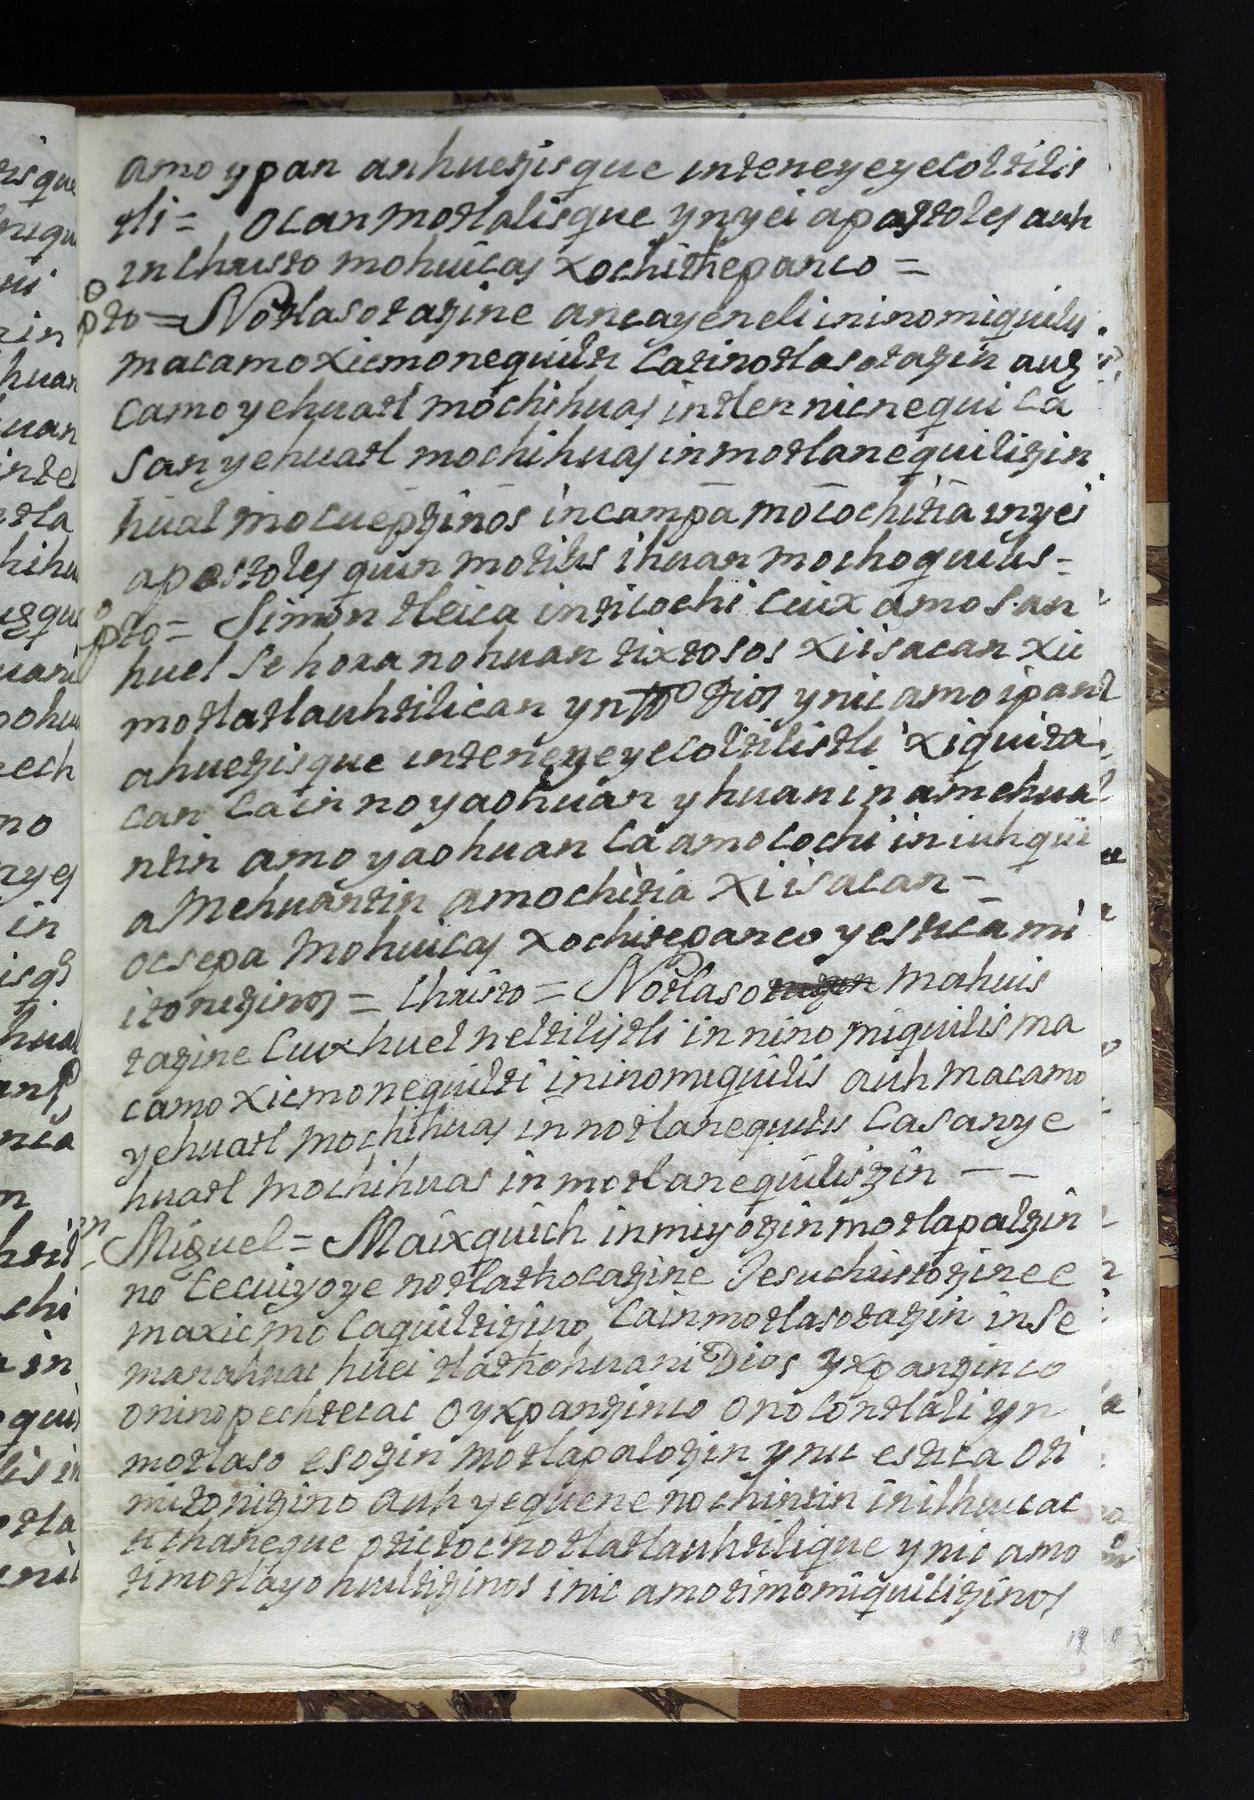 amo ypan anhuezisque inteneyeyecoltilis
tli = ocan motlalisque ynyei apostoles auh
in Christo mohuicas xochithepanco =
pto = Notlasotazine ancayeneli ininomiquilis
macamo xicmonequilti Catinotlasotazin auz
camo yehuatl mochihuas intlen nicnequi Ca
san yehuatl mochihuas inmotlanequilizin
hualmocuepzinos incampa mocochitia inyei
apostoles quinmotilis ihuan mochoquilis =
pto = Simon tleica inticochi Cuix amo san
huel se hora nohuan tixtosos xiisacan xic
motlatlauhtilican yn tto Dios ynic amo ipan
ahuezisque inteneyeyecoltilistli xiquita
can Cain noyaohuan yhuan in amehua
ntin amoyaohuan Ca amo cochi in iuhqui
aMehuantin amochitia xiisacan =
ocsepa Mohuicas xochitepanco yestica mi
itonizinos = Christo = Notlaso Mahuis
tazine Cuix huel neltilistli in ninomiquilis ma
camo xicmonequilti ininomiquilis auh macamo
yehuatl mochihuas in notlanequilis Casanye
huatl mochihuas in motlanequiliszin — —
Miguel = Maixquich inmiyozin motlapalzin
no Tecuiyoye notlathocazine Jesuchristozinee
maxicmocaquiltizino Cainmotlasotazin inse
manahuac huei tlathohuani Dios yxpanzinco
oninopechtecac oyxpanzinco onocontlali yn
motlaso esozin motlapalozin ynic estica oti
mitonizino auh yequene nochintin inilhuicac
tichaneque otictocnotlatlauhtilique ynic amo
timotlayohuiltizinos inic amotimomiquilizinos
19